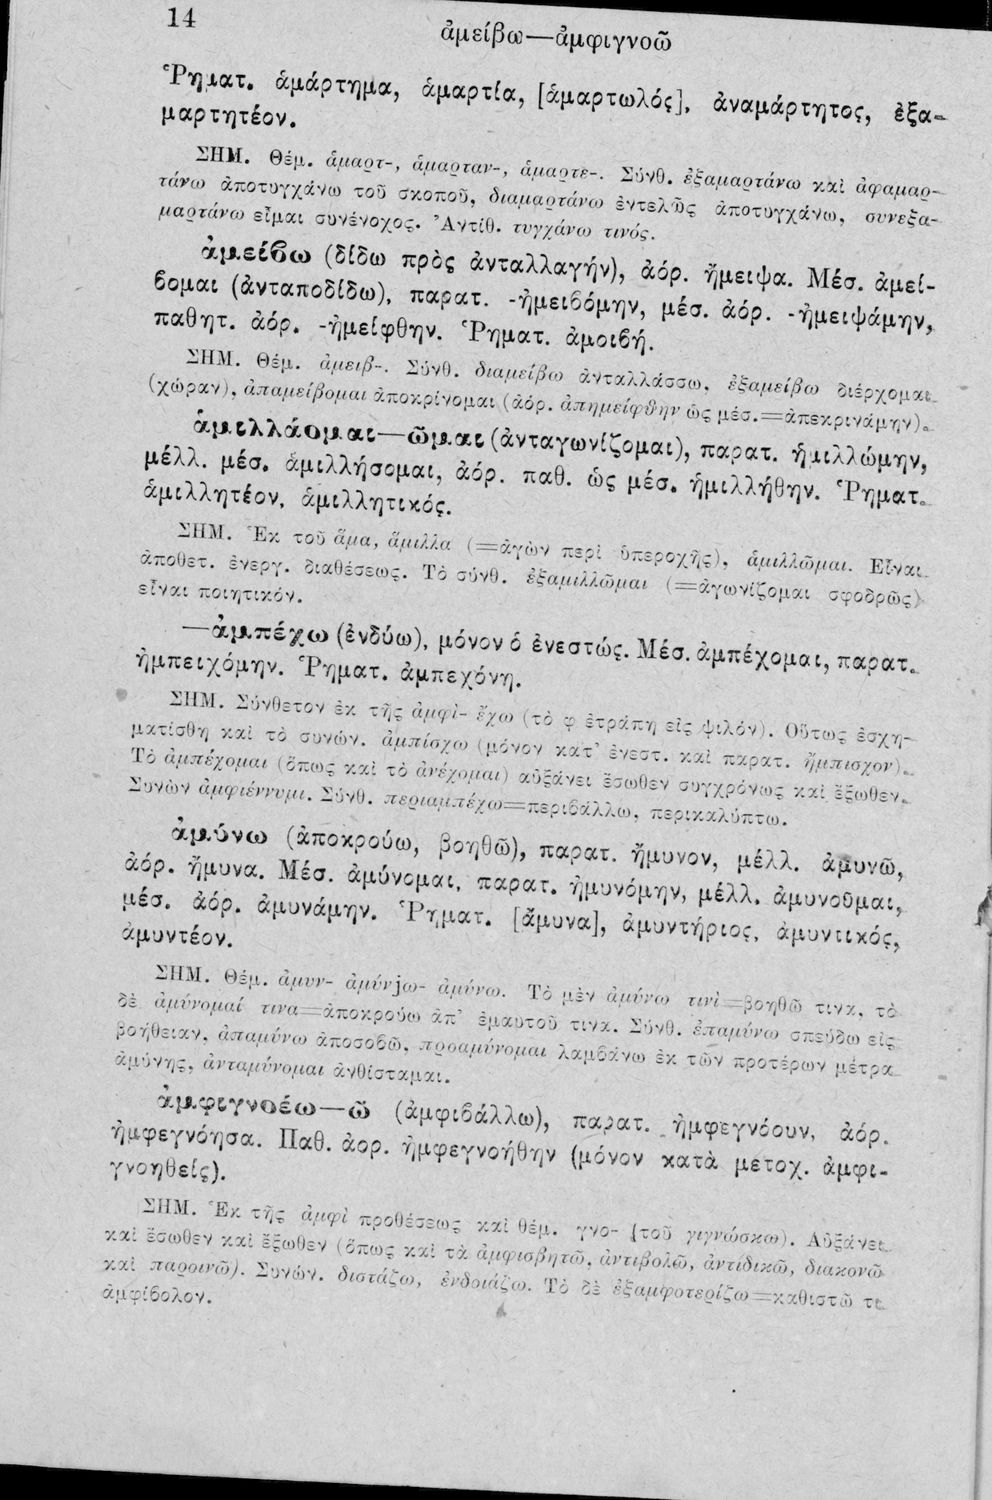 14
ἀμείβω—ἀμφιγνοῶ
Ῥηματ. ἁμάρτημα, ἁμαρτία, [ἁμαρτωλός], ἀναμάρτητος, ἐξα-
μαρτητέον.
ΣΗΜ. Θέμ. ἁμαρτ-, ἁμαρταν-, ἁμαρτε-. Σύνθ. ἐξαμαρτάνω καὶ ἀφαμαρ-
τάνω ἀποτυγχάνω τοῦ σκοποῦ, διαμαρτάνω ἐντελῶς ἀποτυγχάνω, συνεξα-
μαρτάνω εἶμαι συνένοχος. Ἀντίθ. τυγχάνω τινός.
ἀμείβω (δίδω πρὸς ἀνταλλαγήν), ἀόρ. ἤμειψα. Μέσ. ἀμεί-
βομαι (ἀνταποδίδω), παρατ. -ἠμειβόμην, μέσ. ἀόρ. -ἠμειψάμην,
παθητ. ἀόρ. -ἠμείφθην. Ῥηματ. ἀμοιβή.
ΣΗΜ. Θέμ. ἀμειβ-. Σύνθ. διαμείβω ἀνταλλάσσω, ἐξαμείβω διέρχομαι
(χώραν), ἀπαμείβομαι ἀποκρίνομαι (ἀόρ. ἀπημείφθην ὡς μέσ.=ἀπεκρινάμην).
ἁμιλλάομαι—ῶμαι (ἀνταγωνίζομαι), παρατ. ἡμιλλώμην,
μέλλ. μέσ. ἁμιλλήσομαι, ἀόρ. παθ. ὡς μέσ. ἡμιλλήθην. Ῥηματ.
ἁμιλλητέον, ἁμιλλητικός.
ΣΗΜ. Ἐκ τοῦ ἅμα, ἅμιλλα (=ἀγὼν περὶ ὑπεροχῆς), ἁμιλλῶμαι. Εἶναι
ἀποθετ. ἐνεργ. διαθέσεως. Τὸ σύνθ. ἐξαμιλλῶμαι (=ἀγωνίζομαι σφοδρῶς)
εἶναι ποιητικόν.
—ἀμπέχω (ἐνδύω), μόνον ὁ ἐνεστώς. Μέσ. ἀμπέχομαι, παρατ.
ἠμπειχόμην. Ῥηματ. ἀμπεχόνη.
ΣΗΜ. Σύνθετον ἐκ τῆς ἀμφὶ- ἔχω (τὸ φ ἐτράπη εἰς ψιλόν). Οὕτως ἐσχη-
ματίσθη καὶ τὸ συνών. ἀμπίσχω (μόνον κατ' ἐνεστ. καὶ παρατ. ἤμπισχον).
Τὸ ἀμπέχομαι (ὅπως καὶ τὸ ἀνέχομαι) αὐξάνει ἔσωθεν συγχρόνως καὶ ἔξωθεν.
Συνὼν ἀμφιέννυμι. Σύνθ. περιαμπέχω=περιβάλλω, περικαλύπτω.
ἀμύνω (ἀποκρούω, βοηθῶ), παρατ. ἤμυνον, μέλλ. ἀμυνῶ,
ἀόρ. ἤμυνα. Μέσ. ἀμύνομαι, παρατ. ἠμυνόμην, μέλλ. ἀμυνοῦμαι,
μέσ. ἀόρ. ἀμυνάμην. Ῥηματ. [ἄμυνα], ἀμυντήριος, ἀμυντικός,
ἀμυντέον.
ΣΗΜ. Θέμ. ἀμυν- ἀμύνjω- ἀμύνω. Τὸ μὲν ἀμύνω τινὶ=βοηθῶ τινα, τὸ
δὲ ἀμύνομαί τινα=ἀποκρούω ἀπ' ἐμαυτοῦ τινα. Σύνθ. ἐπαμύνω σπεύδω εἰς
βοήθειαν, ἀπαμύνω ἀποσοβῶ, προαμύνομαι λαμβάνω ἐκ τῶν προτέρων μέτρα
ἀμύνης, ἀνταμύνομαι ἀνθίσταμαι.
ἀμφιγνοέω—ῶ (ἀμφιβάλλω), παρατ. ἠμφεγνόουν, ἀόρ.
ἠμφεγνόησα. Παθ. ἀορ. ἠμφεγνοήθην (μόνον κατὰ μετοχ. ἀμφι-
γνοηθείς).
ΣΗΜ. Ἐκ τῆς ἀμφὶ προθέσεως καὶ θέμ. γνο- (τοῦ γιγνώσκω). Αὐξάνει
καὶ ἔσωθεν καὶ ἔξωθεν (ὅπως καὶ τὰ ἀμφισβητῶ, ἀντιβολῶ, ἀντιδικῶ, διακονῶ
καὶ παροινῶ). Συνών. διστάζω, ἐνδοιάζω. Τὸ δὲ ἐξαμφοτερίζω=καθιστῶ τι
ἀμφίβολον.